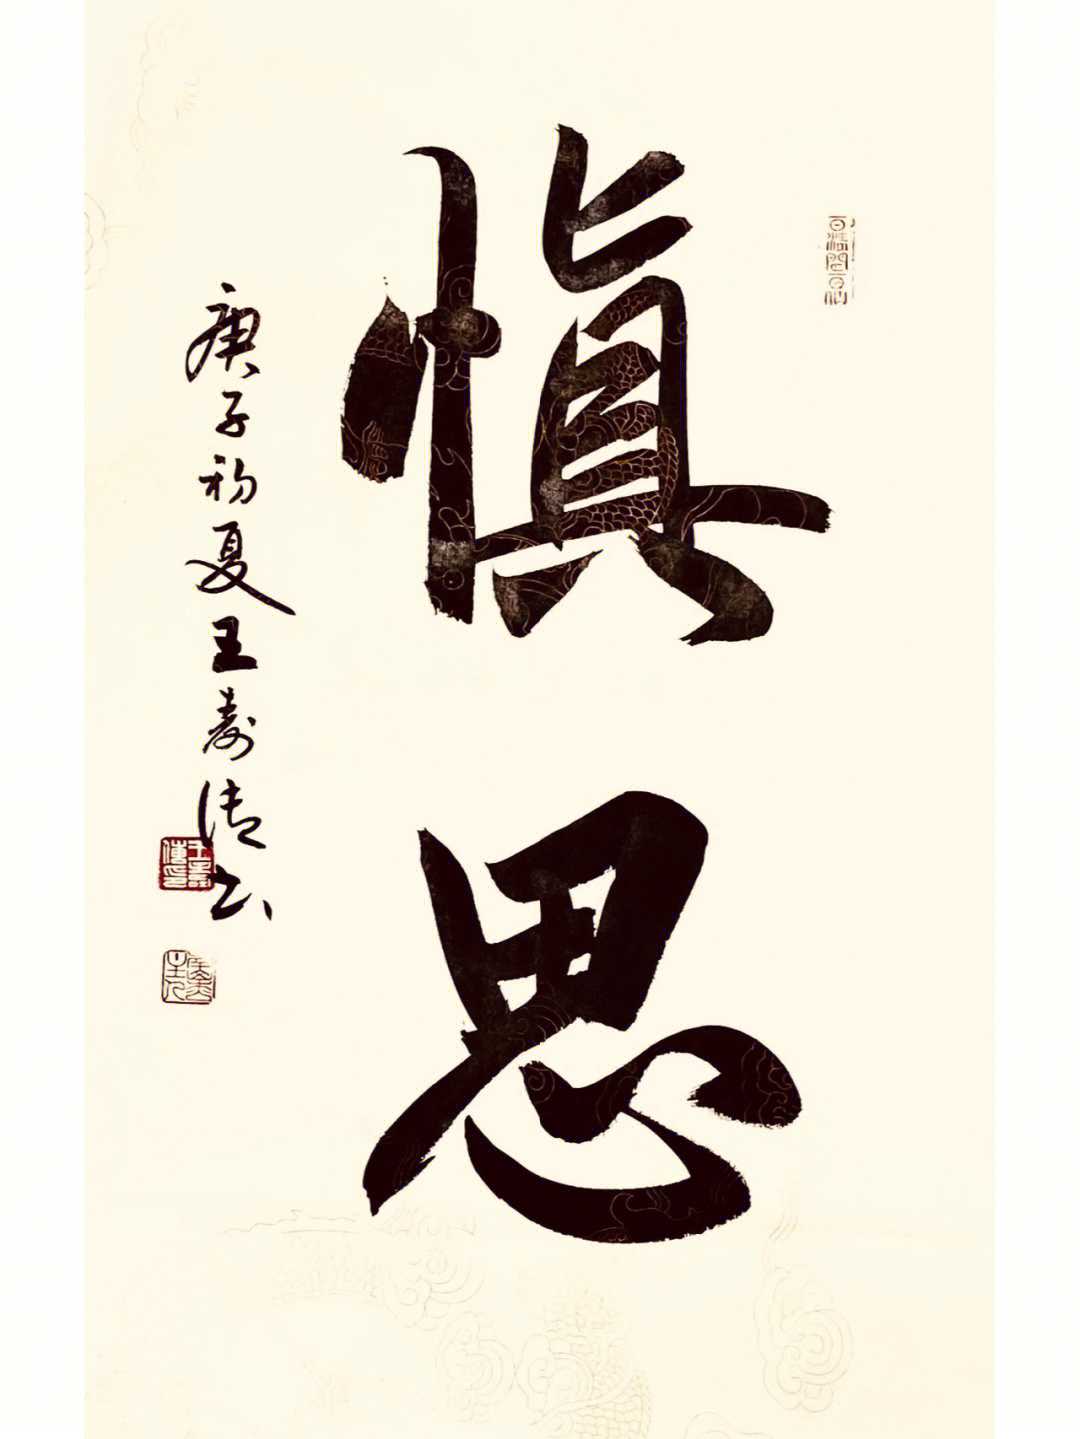 慎思
庚子初夏王寿清书